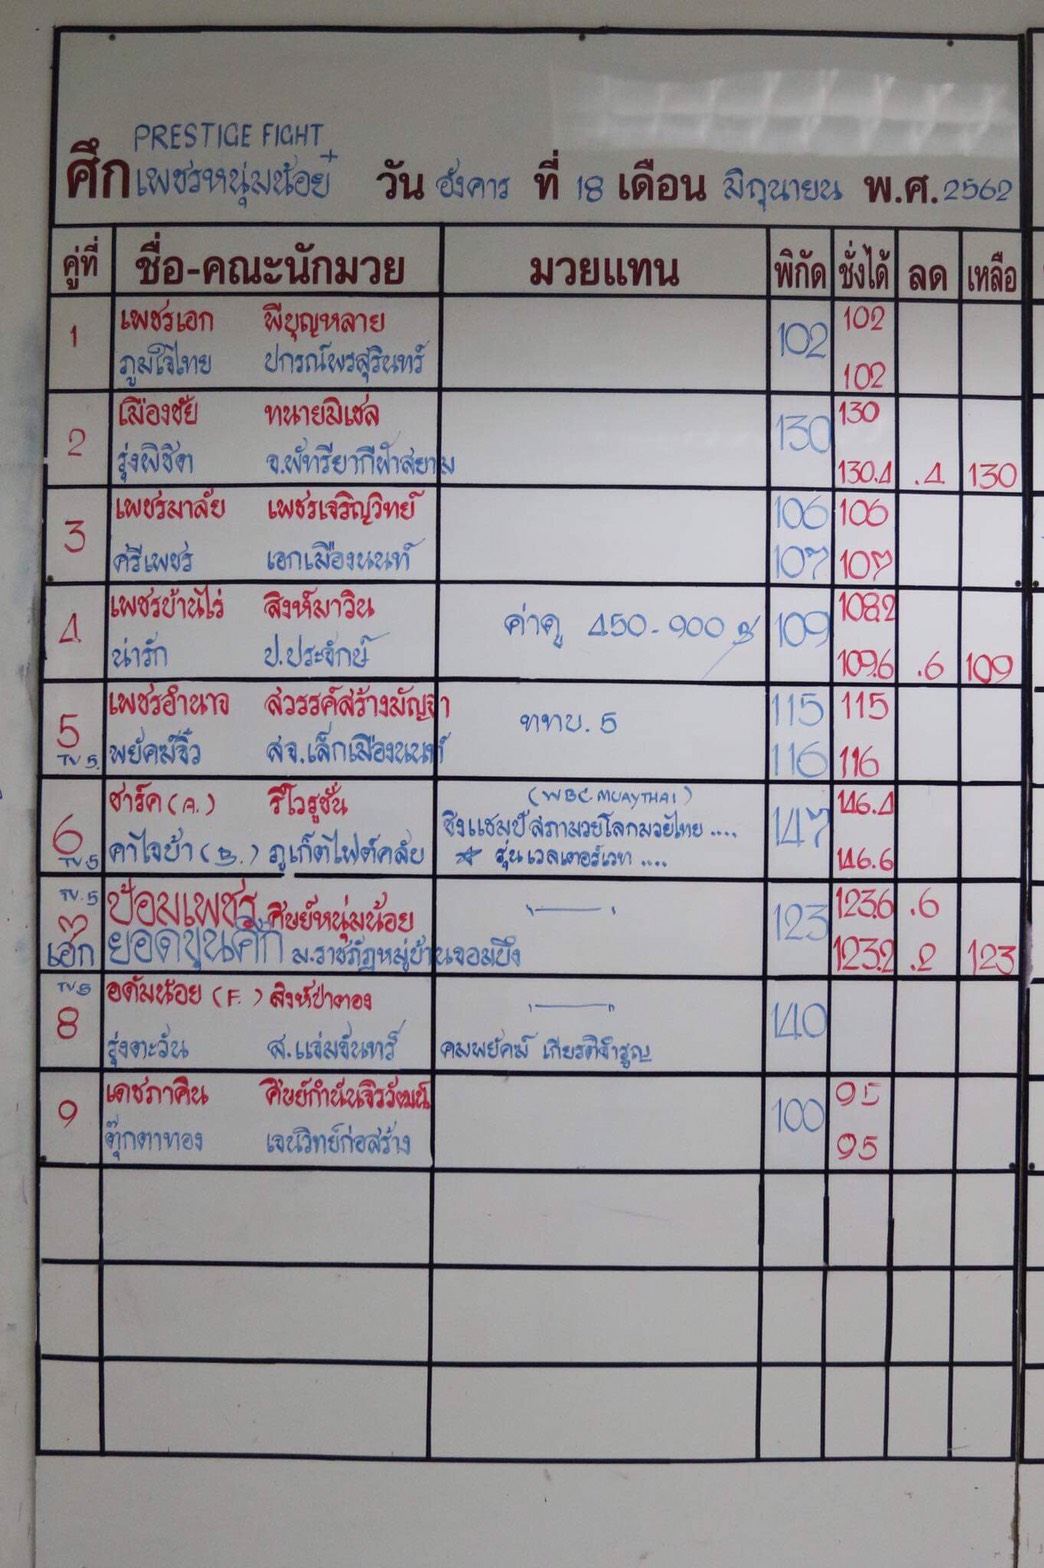 PRESTIGE FIGHT
ศึก เพชรหนุ่มน้อย + วัน อังคาร ที่ 18 เดือน มิถุนายน พ.ศ. 2562
คู่ที่ ชื่อ-คณะนักมวย มวยแทน พิกัด ชั่งได้ ลด เหลือ
1 เพชรเอก พีบุญหลาย 102 102
ภูมิใจไทย ปกรณ์พรสุรินทร์ 102
2 เมืองชัย ทนายมิเชล 130 130
รุ่งพิชิต จ.พัทรียากีฬาสยาม 130.4 .4 130
3 เพชรมาลัย เพชรเจริญวิทย์ 106 106
ศรีเพชร เอกเมืองนนท์ 107 107
4 เพชรบ้านไร่ สิงห์มาวิน ค่าดู 450-900 109 108.2
น่ารัก ป.ประจักษ์ 109.6 .6 109
5 เพชรอำนาจ สวรรค์สร้างมัญจา ททบ. 5 115 115
TV.5 พยัคฆ์จิ๋ว สจ.เล็กเมืองนนท์ 116 116
(WBC MUAYTHAI)
6 ชาร์ค (A.) รีโวรูชั่น ชิงแชมป์สภามวยโลกมวยไทย .... 147 146.4
TV.5 คาไอย้า (B.) ภูเก็ตไฟต์คลับ ☆ รุ่นเวลเตอร์เวท .... 146.6
TV.5 ป้อมเพชร ศิษย์หนุ่มน้อย 123 123.6 .6
7 เอก ยอดขุนศึก ม.ราชภัฏหมู่บ้านจอมบึง 123.2 .2 123
TV.5 อดัมน้อย (F.) สิงห์ป่าตอง 140
8 รุ่งตะวัน ส.แจ่มจันทร์ คมพยัคฆ์ เกียรติจำรูญ
9 เดชภาคิน ศิษย์กำนันจิวัฒน์ 100 95
ตุ๊กตาทอง เจนวิทย์ก่อสร้าง 95